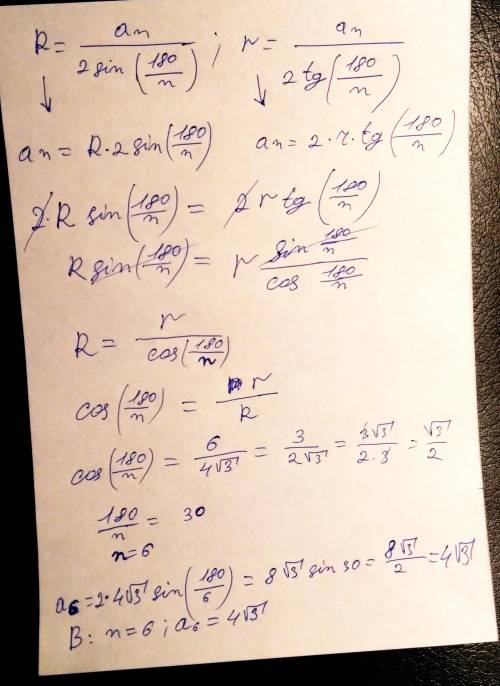 R = an / (2 sin(180/n)) ; r = an / (2 tg(180/n))
↓ ↓
an = R·2 sin(180/n) an = 2·r·tg(180/n)
2·R sin(180/n) = 2 r tg(180/n)
R sin(180/n) = r (sin 180/n) / (cos 180/n)
R = r / cos(180/n)
cos(180/n) = r / R
cos(180/n) = 6 / 4√3 = 3 / 2√3 = 3√3 / 2·3 = √3 / 2
180/n = 30
n = 6
a6 = 2·4√3 sin(180/6) = 8√3 sin 30 = 8√3 / 2 = 4√3
В: n = 6 ; a6 = 4√3